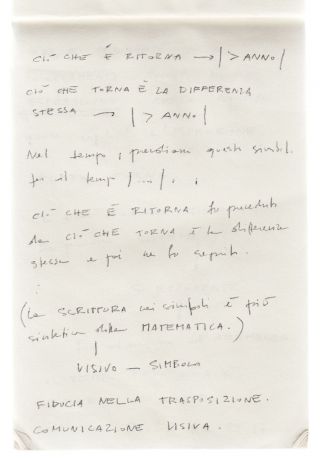 CIÒ CHE È RITORNA → | > ANNO |
CIÒ CHE TORNA È LA DIFFERENZA
STESSA → | > ANNO |
Nel tempo, questi simboli
per il tempo | ... | . ,
CIÒ CHE È RITORNA fu preceduto
da CIÒ CHE TORNA È la differenza
stessa e poi ne fu seguito.
:
(La SCRITTURA nei simboli è più
sintetica della MATEMATICA.)
|
VISIVO — SIMBOLO
FIDUCIA NELLA TRASPOSIZIONE.
COMUNICAZIONE VISIVA.